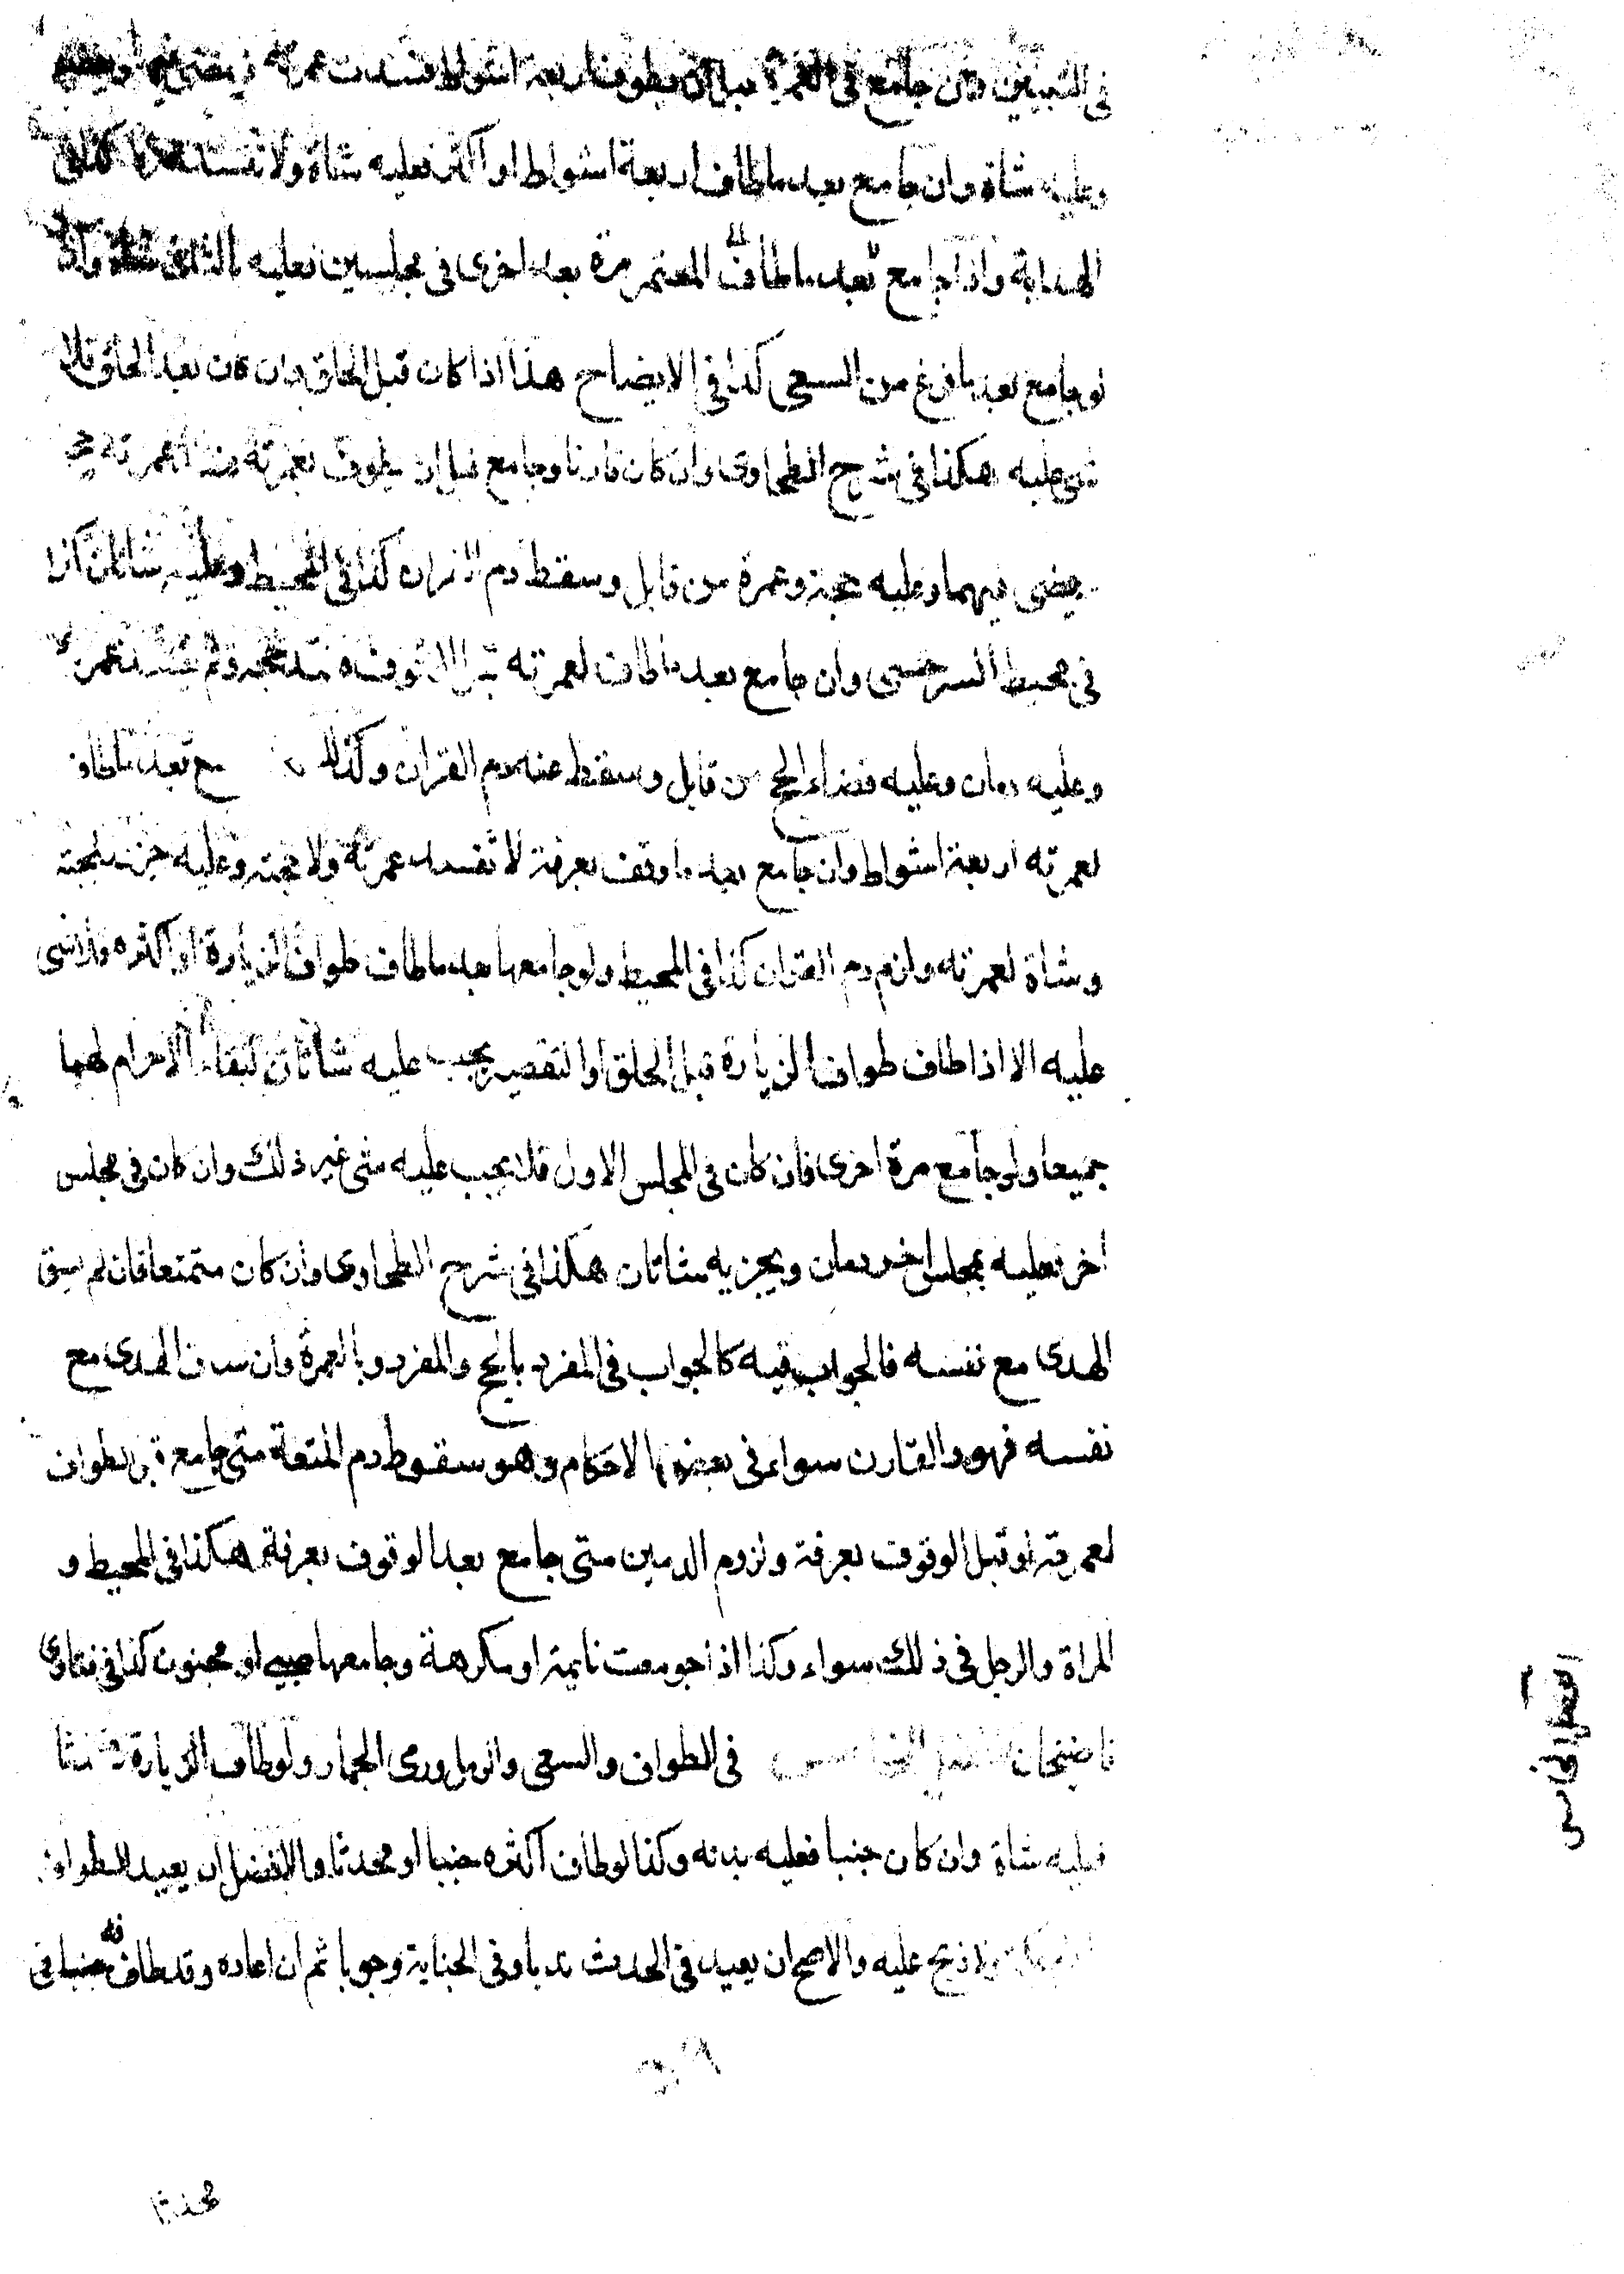 في التبيين ومن جامع في العمرة قبل ان يطوف اربعة اشواط فسدت عمرته فيمضي فيها ويقضيها
وعليه شاة وان جامع بعد ما طاف اربعة اشواط او اكثر فعليه شاة ولا تفسد عمرته كذا في
الهداية واذا جامع بعد ما طاف المعتمر مرة بعد اخرى في مجلسين فعليه بالثاني شاة وكذا
لو جامع بعد ما فرغ من السعي كذا في الايضاح هذا اذا كان قبل الحلق وان كان بعد الحلق فلا
شي عليه هكذا في شرح الطحاوي وان كان قارنا وجامع قبل ان يطوف بعمرته
يمضي فيهما وعليه حجة وعمرة من قابل وسقط دم القران كذا في المحيط وعليه شاتان كذا
في محيط السرخسي وان جامع بعد ما طاف لعمرته قبل الوقوف فسد حجه ولم تفسد عمرته
وعليه دمان وعليه قضاء الحج من قابل وسقط عنه دم القران وكذلك بعد ما طاف
لعمرته اربعة اشواط وان جامع بعد ما وقف بعرفة لا تفسد عمرته ولا حجته وعليه جزور لحجته
وشاة لعمرته ولزم دم القران كذا في المحيط ولو جامعها بعد ما طاف طواف الزيارة او اكثره فلا شي
عليه الا اذا طاف طواف الزيارة قبل الحلق او التقصير يجب عليه شاتان لبقاء الاحرام لهما
جميعا ولو جامع مرة اخرى فان كان في المجلس الاول فلا يجب عليه شي غير ذلك وان كان في مجلس
اخر فعليه بمجلس اخر دمان ويجزيه شاتان هكذا في شرح الطحاوي وان كان متمتعا فان لم يسق
الهدى مع نفسه فالجواب فيه كالجواب في المفرد بالحج والمفرد وبالعمرة وان ساق الهدى مع
نفسه فهو والقارن سواء في بعض الاحكام وهو سقوط دم المتعة متى جامع قبل الطواف
لعمرته او قبل الوقوف بعرفة ولزوم الدمين متى جامع بعد الوقوف بعرفة هكذا في المحيط و
المراة والرجل في ذلك سواء وكذا اذا جومعت نايمة او مكرهة وجامعها صبي او مجنون كذا في فتاوى
قاضيخان الفصل الخامس في الطواف والسعي والرمل ورمي الجمار ولو طاف الزيارة محدثا
فعليه شاة وان كان جنبا فعليه بدنه وكذا لو طاف اكثره جنبا او محدثا والافضل ان يعيد الطواف
ولا ذبح عليه والاصح ان يعيد في الحدث ندبا وفي الجنابة وجوبا ثم ان اعاده وقد طافه جنبا في
محدثا
الفصل الخامس